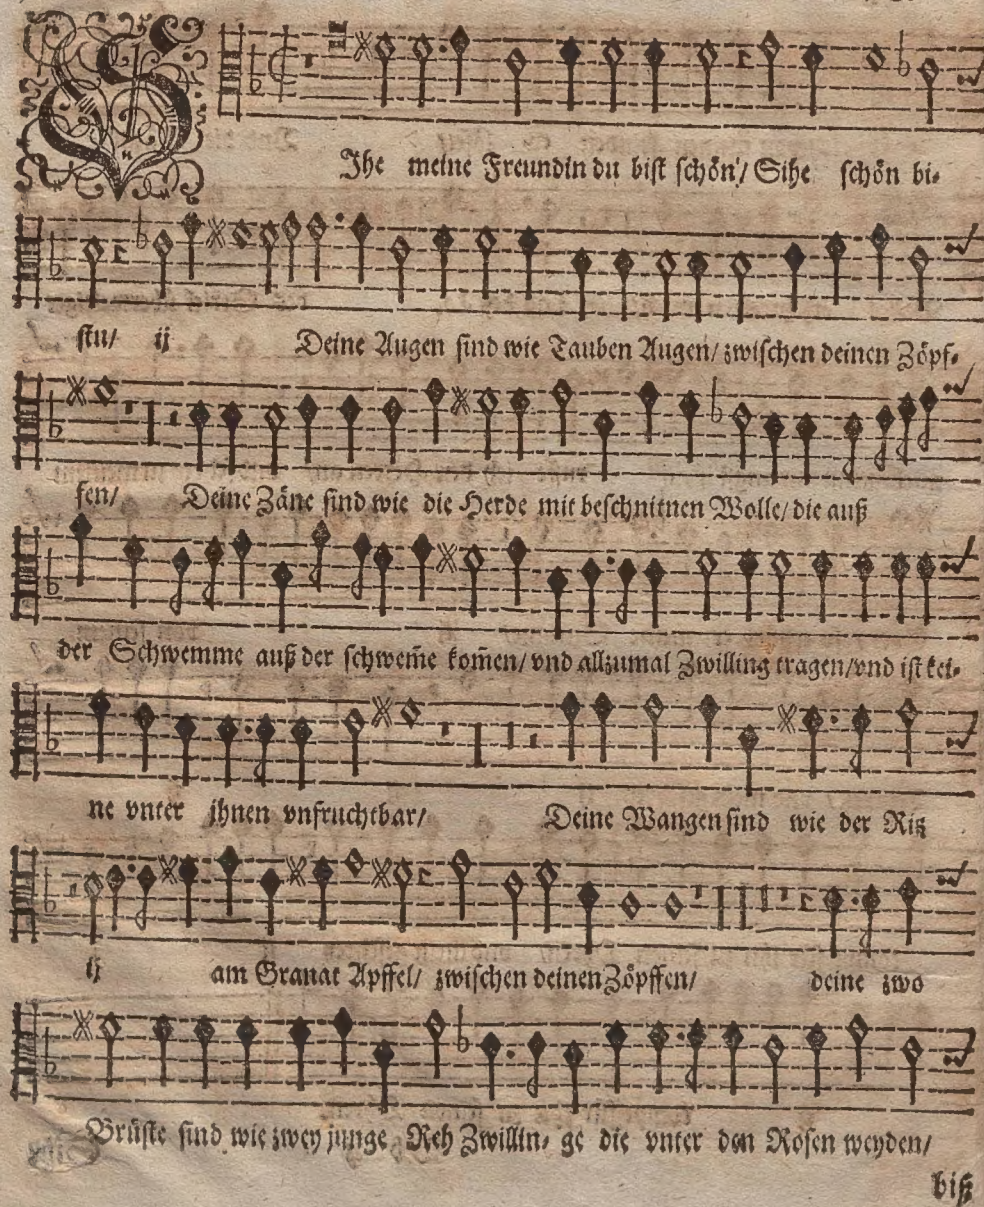 SIhe meine Freundin du bist schön/ Sihe schön bi-
stu/ ij Deine Augen sind wie Tauben Augen/ zwischen deinen Zöpf-
fen/ Deine Zäne sind wie die Herde mit beschnitnen Wolle/ die auß
der Schwemme auß der schwem̃e kom̃en/ vnd allzumal Zwilling tragen/ vnd ist kei-
ne vnter jhnen vnfruchtbar/ Deine Wangen sind wie der Ritz
ij am Granat Apffel/ zwischen deinen Zöpffen/ deine zwo
Brüste sind wie zwey junge Reh Zwillin- ge die vnter den Rosen weyden/
biß